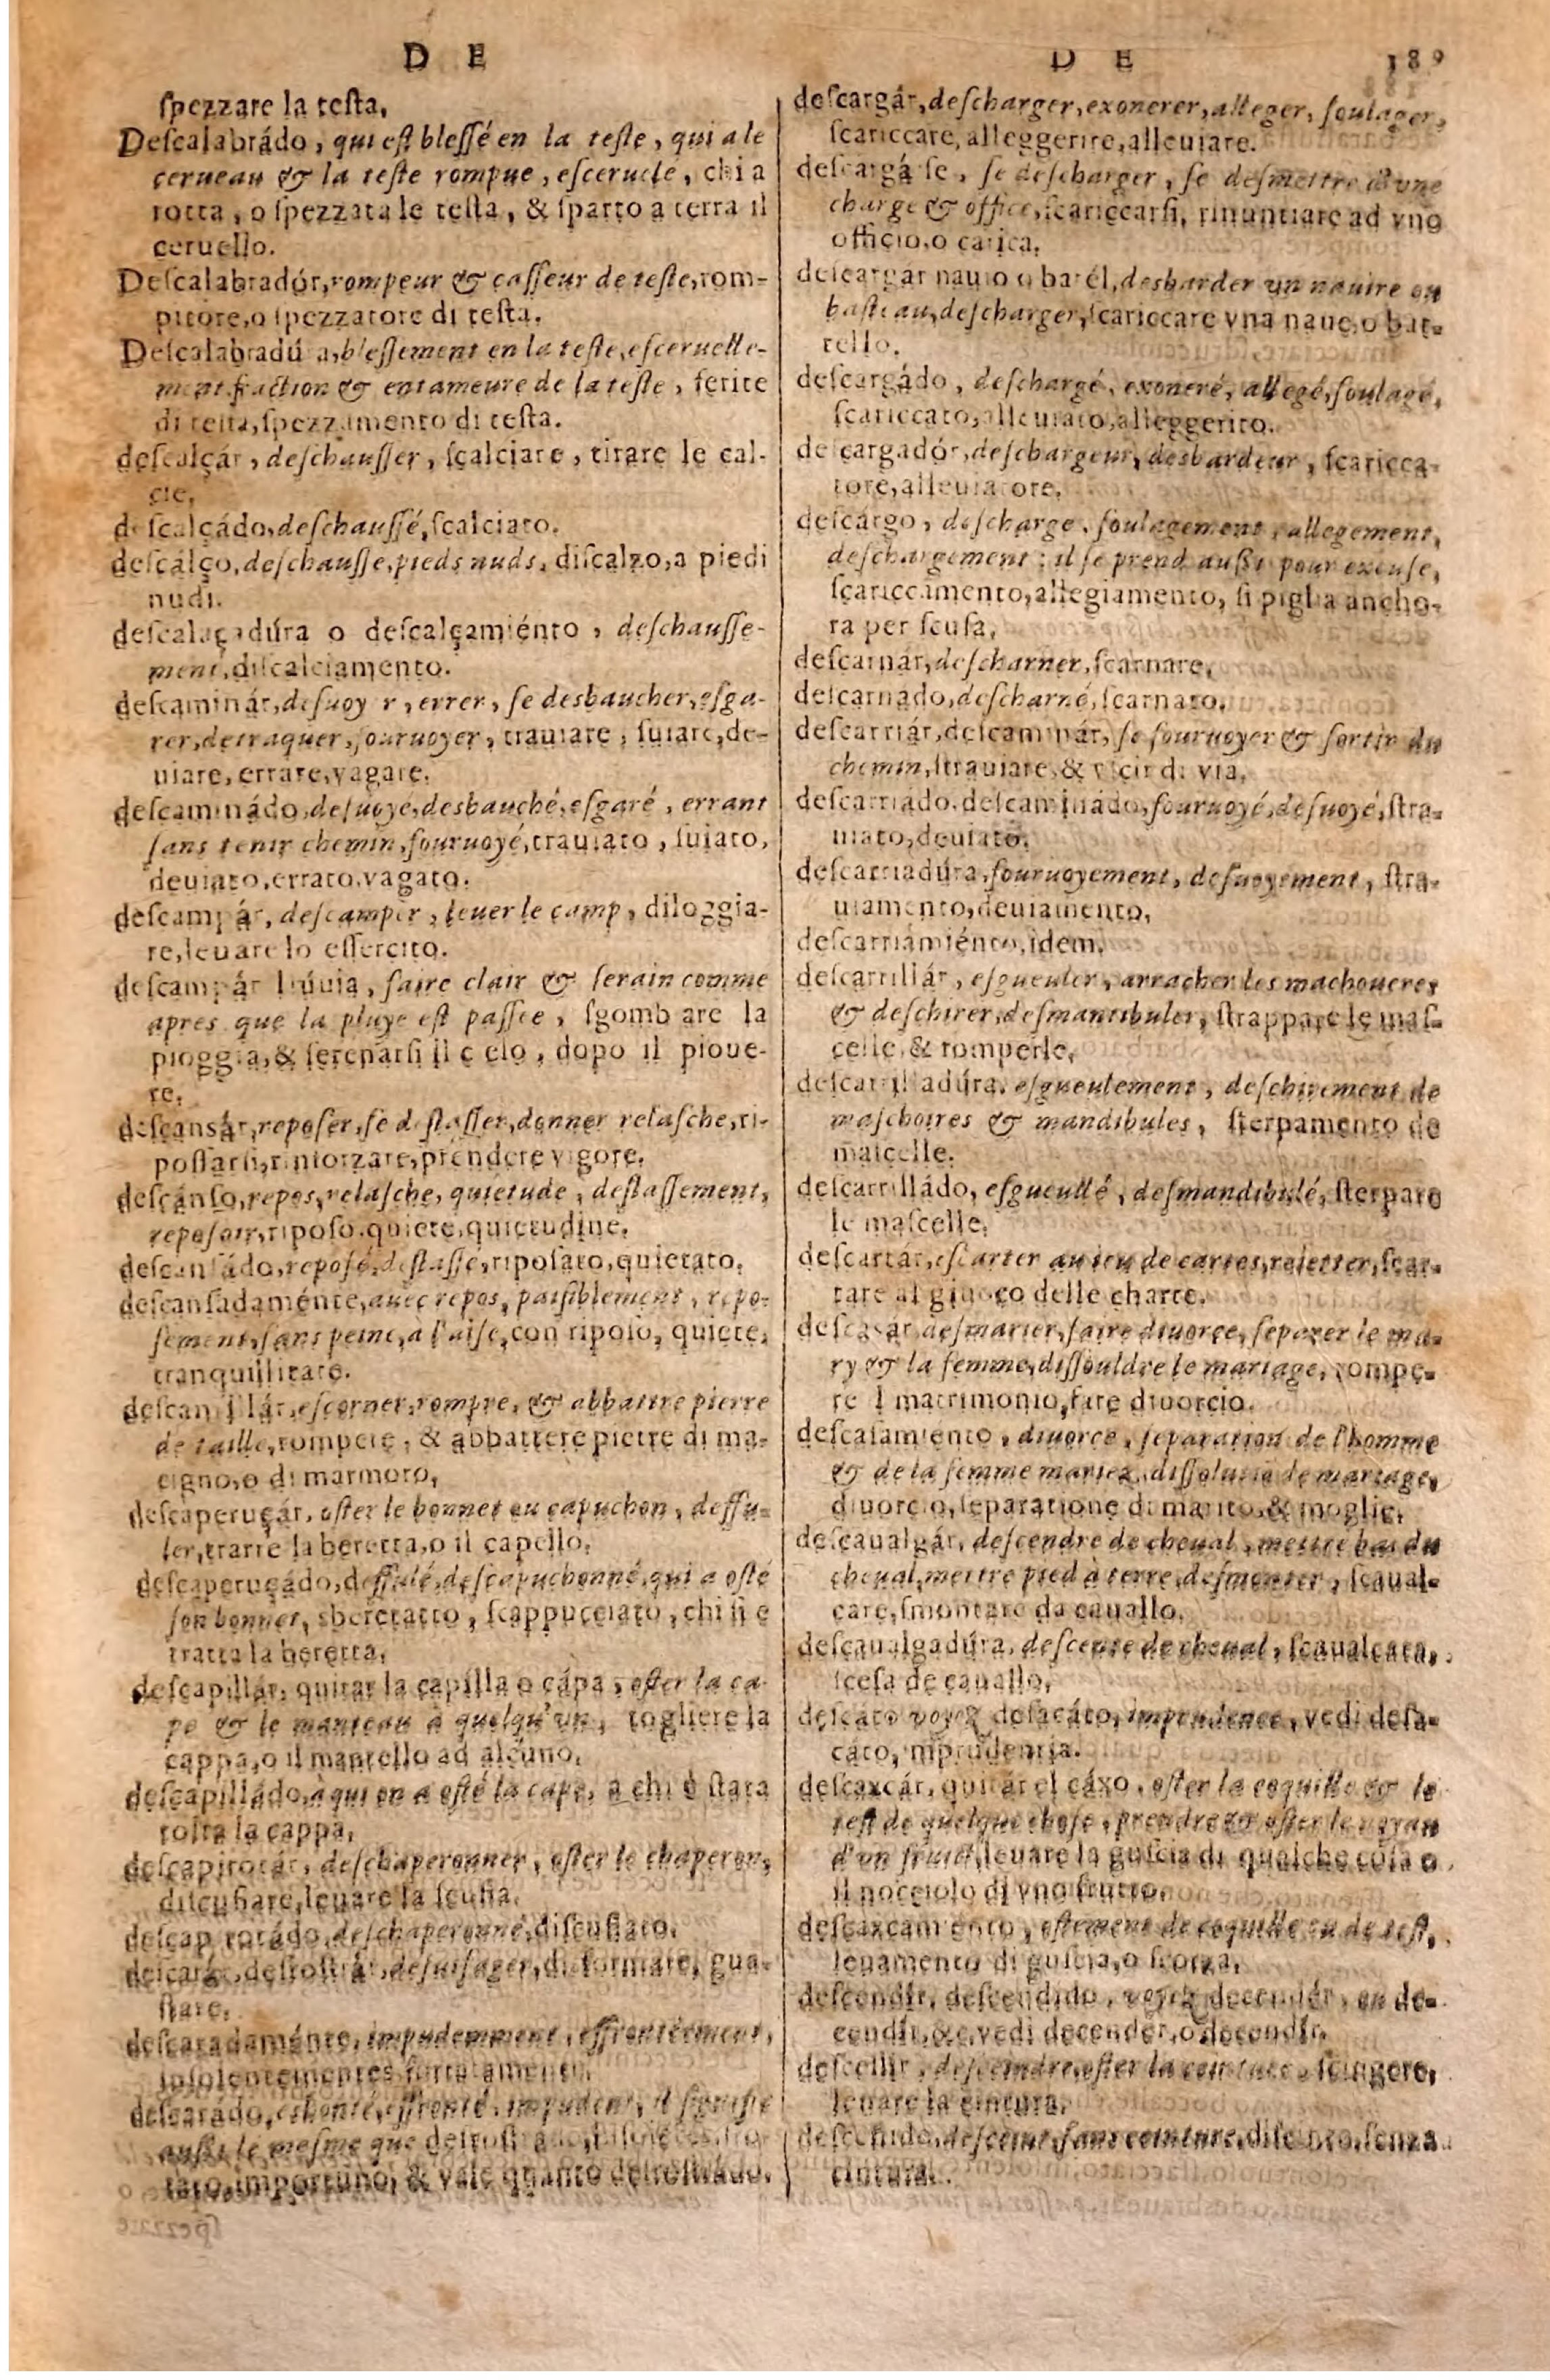 D E
spezzare la testa.
Descalabrádo, qui est blessé en la teste, qui a le
cerueau & la teste rompue, esceruele, chi a
rotta, o spezzata le testa, & sparto a terra il
ceruello.
Descalabradór, rompeur & casseur de teste, rom-
pitore, o spezzatore di testa.
Descalabradú a, blessement en la teste, esceruelle-
ment fraction & entameure de la teste, ferite
di testa, spezzamento di testa.
descalçár, deschausser, scalciare, tirare le cal-
cie.
descalçádo, deschaussé, scalciato.
descálço, deschausse, pieds nuds, discalzo, a piedi
nudi.
descalaçadúra o descalçamiénto, deschausse-
ment, discalciamento.
descaminár, desuoy r, errer, se desbaucher, esga-
rer, detraquer, fouruoyer, trauiare, suiare, de-
uiare, errare, vagare.
descaminádo, desuoyé, desbauché, esgaré, errant
sans tenir chemin, fouruoyé, trauiato, suiato,
deuiato, errato, vagato.
descampár, descamper, leuer le camp, diloggia-
re, leuare lo essercito.
descampár lúuia, faire clair & serain comme
apres que la pluye est passee, sgomb are la
pioggia, & serenarsi il c elo, dopo il pioue-
re.
descansár, reposer, se d slasser, donner relasche, ri-
possarsi, rinforzare, prendere vigore.
descánso, repos, relasche, quietude, deslassement,
reposoir, riposo, quiete, quietudine.
descansádo, reposé, deslassé, riposato, quietato.
descansadaménte, auec repos, paisiblement, repo-
sement, sans peine, à l'aise, con riposo, quiete,
tranquillitate.
descantillár, escorner, rompre, & abbattre pierre
de taille, rompere, & abbattere pietre di ma-
cigno, o di marmoro,
descaperuçár, oster le bonnet ou capuchon, deffu-
ler, trarre la beretta, o il capello.
descaperuçádo, deffulé, descapuchonné, qui a osté
son bonnet, sberetatto, scappucciato, chi si e
tratta la beretta.
descapillár, quitar la capilla o cápa, oster la ca-
pe & le manteau à quelqu'vn, togliere la
cappa, o il mantello ad alcuno.
descapilládo, à qui on a osté la cape, a chi è stata
tolta la cappa,
descapirotár, deschaperonner, oster le chaperon,
discufiare, leuare la scufia.
descap rotádo, deschaperonné, discufiato.
descarár, desrostrár, desuisager, disformare, gua-
stare.
descaradaménte, impudemment, effrontément,
descarádo, eshonté, effronté, impudent, il signifie
aussi le mesme que
tato, importuno, & vale quanto desrostrado.
D E 189
descargár, descharger, exonerer, alleger, soulager,
scariccare, alleggerire, alleuiare.
descargá se, se descharger, se desmettre d'vne
charge & office, scariccarsi, rinuntiare ad vno
officio, o carica.
descargár nauio o batél, desbarder vn nauire ou
basteau, descharger, scariccare vna naue, o bat-
tello.
descargádo, deschargé, exoneré, allegé, soulagé,
scariccato, alleuiato, alleggerito.
descargadór, deschargeur, desbardeur, scaricca-
tore, alleuiatore.
descárgo, descharge, soulagement, allegement,
deschargement; il se prend aussi pour excuse,
scariccamento, allegiamento, si piglia ancho-
ra per scusa.
descarnár, descharner, scarnare,
descarnado, descharné, scarnato.
descarriár, descaminár, se fouruoyer & sortir du
chemin, strauiare, & vscir di via.
descarriádo, descaminádo, fouruoyé, desuoyé, stra-
uiato, deuiato.
descarriadúra, fouruoyement, desuoyement, stra-
uiamento, deuiamento,
descarriámiénto, idem.
descarrillár, esgueuler, arracher les machoueres
& deschirer, desmantibuler, strappare le mas-
celle, & romperle,
descarrilladúra, esgueulement, deschirement de
maschoires & mandibules, sterpamento de
mascelle.
descarrilládo, esgueullé, desmandibulé, sterpare
le mascelle.
descartár, escarter au ieu de cartes, reietter, scar-
tare al giuoco delle charte.
descasár, desmarier, faire diuorce, separer le ma-
ry & la femme, dissouldre le mariage, rompe-
re l matrimonio, fare diuorcio.
descasamiento, diuorce, separation de l'homme
& de la femme mariez, dissolutiō de mariage,
diuorcio, separatione di marito, & moglie,
descaualgár, descendre de cheual, mettre bas du
cheual, mettre pied à terre, desmonter, scaual-
care, smontare da cauallo.
descaualgadúra, descente de cheual, scaualcata,
scesa de cauallo,
descáto voyez desacáto, imprudence, vedi desa-
cáto, mprudentia.
descaxcár, quitár el cáxo, oster la coquille & le
test de quelque chose, prendre & oster le noyau
d'un fruict, leuare la guscia di qualche cosa o
il nocciolo di vno frutto.
descaxcamiento, ostement de coquille ou de test,
leuamento di guscia, o scorza,
descendír, descendido, voyez decendér, ou de-
cendír, &c, vedi decendér, o decendír.
desceñir, desceindre, oster la ceinture, scingere,
leuare la cintura.
desceñido, desceint, sans ceinture, discinto, senza
cintura.